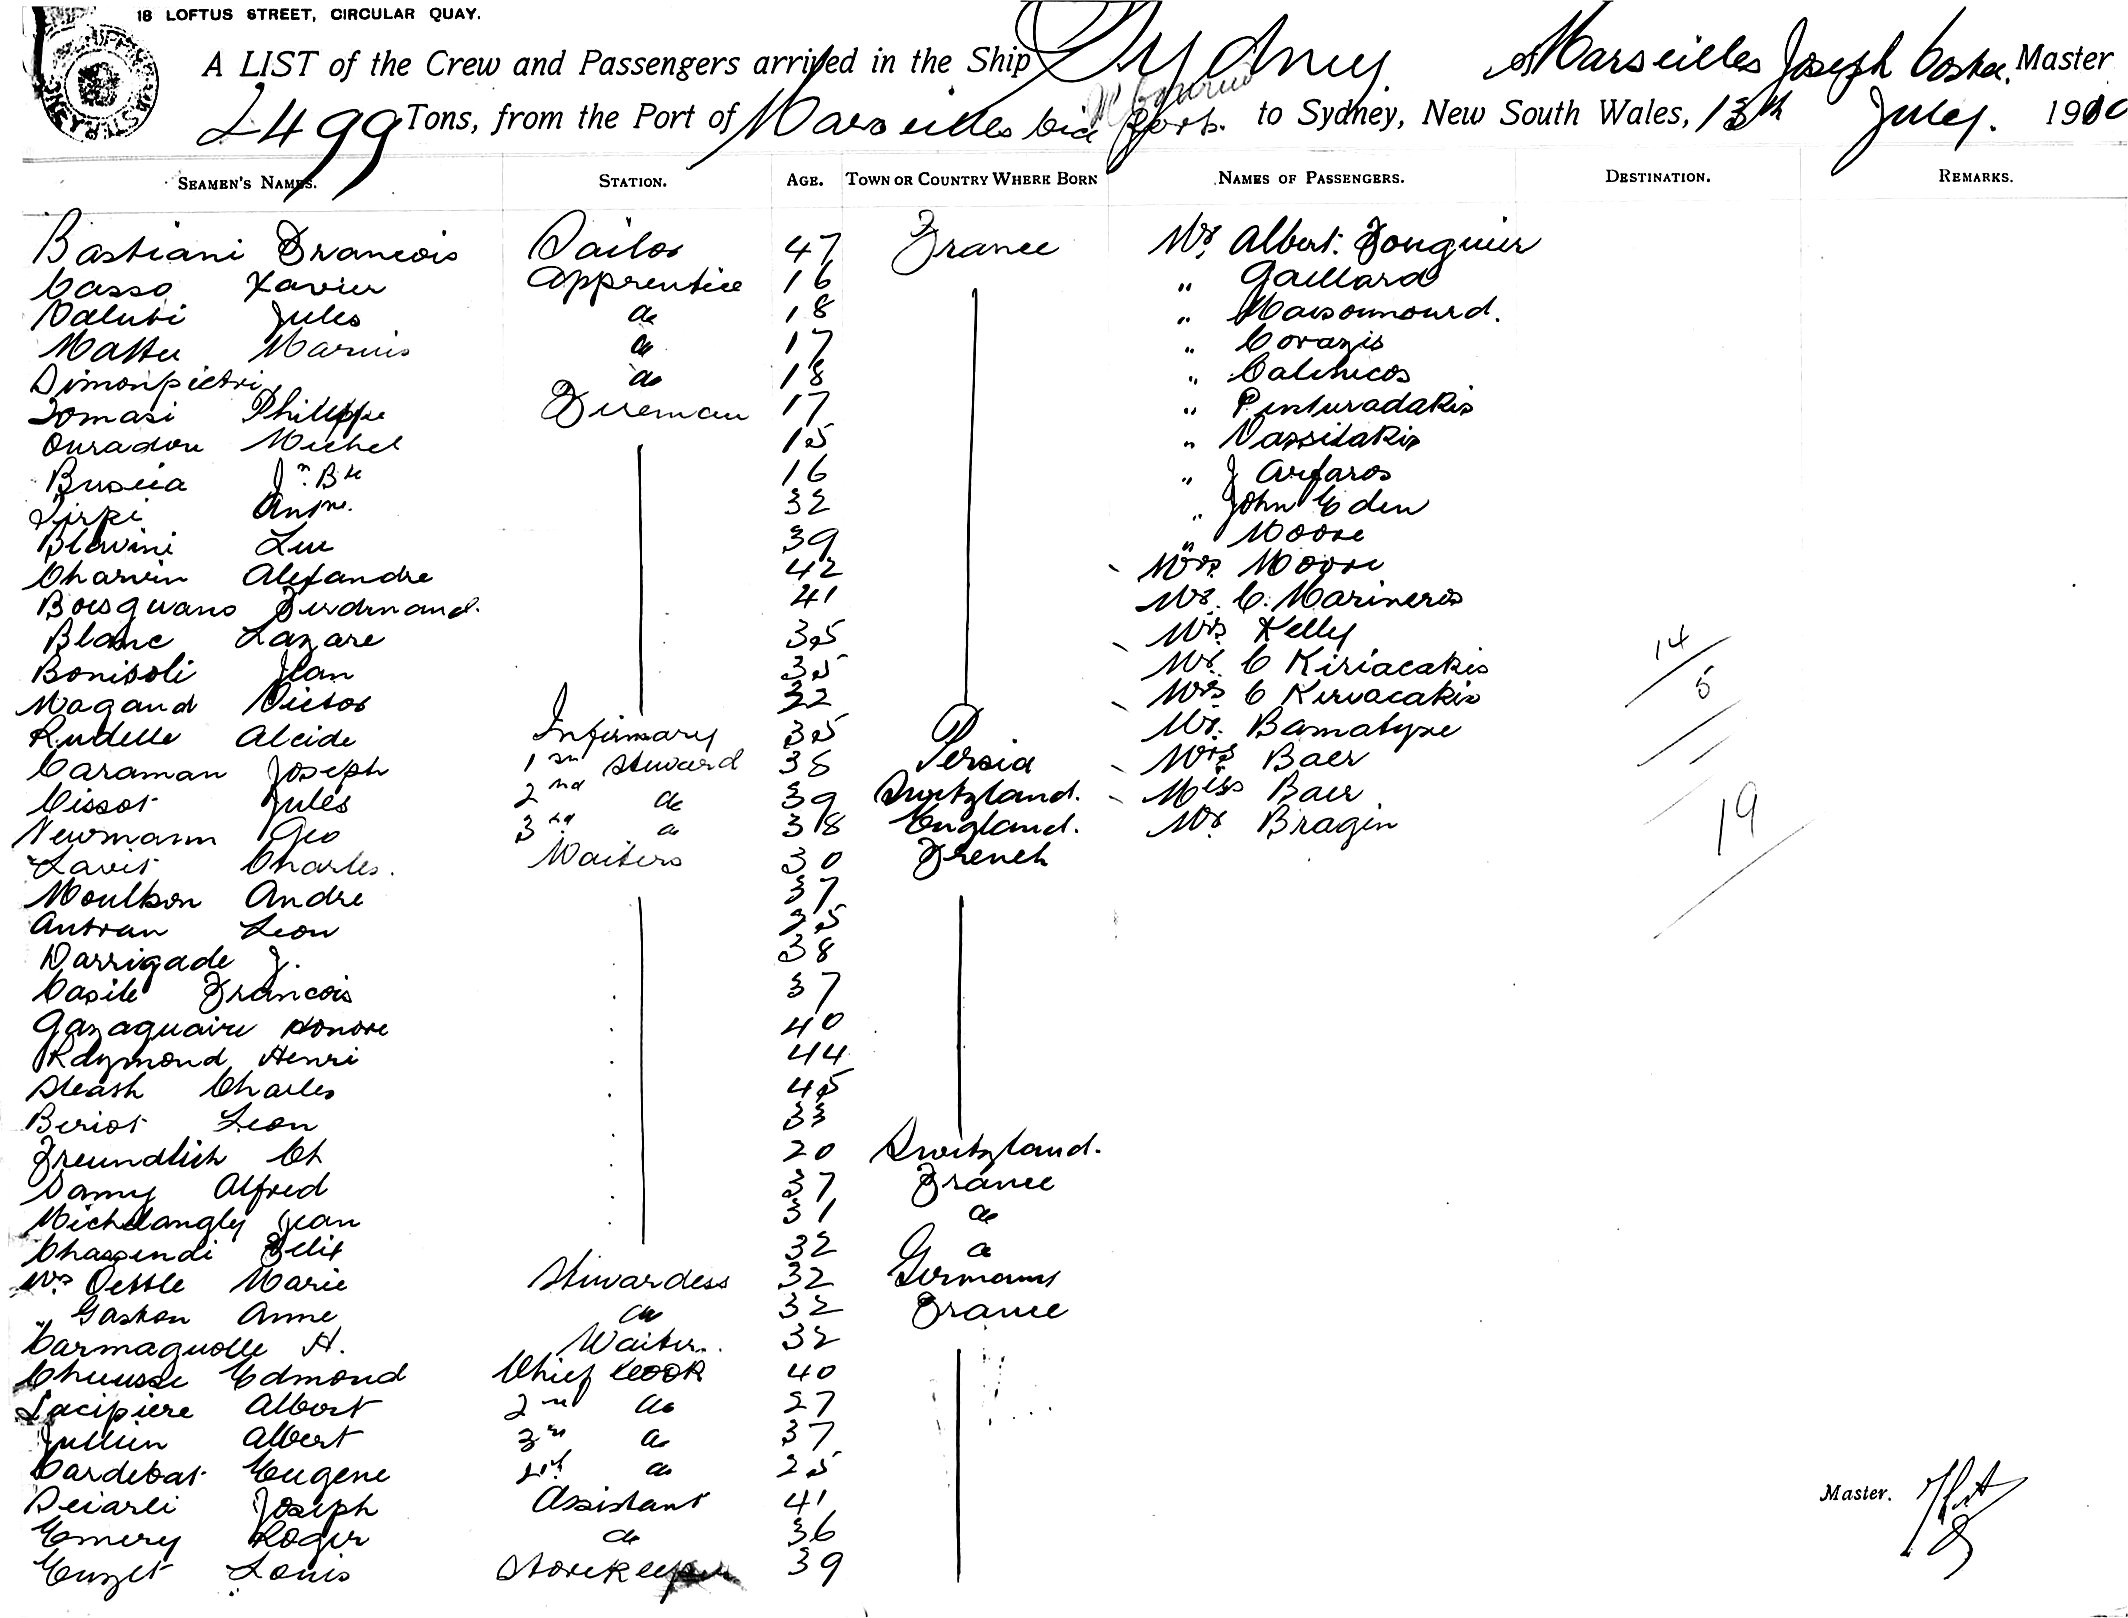 18 LOFTUS STREET, CIRCULAR QUAY.
A LIST of the Crew and Passengers arrived in the Ship Sydney of Marseilles Joseph Costa. Master
2499 Tons, from the Port of Marseilles via Ports. to Sydney, New South Wales, 13th July. 1910
SEAMEN'S NAMES. STATION. AGE. TOWN OR COUNTRY WHERE BORN NAMES OF PASSENGERS. DESTINATION. REMARKS.
Bastiani Francois Sailor 47 France Mr Albert. Fouquier
Casso Xavier Apprentice 16 " Gaillard
Jules do 18 "
Mattu Marius do 17 " Corazis
Simonpietri do 18 "
Tomasi Philippe Fireman 17 "
Ouradou Michel 15 " Vassilakis
Buscia Jn Bte 16 " J Arfaros
Ante. 32 " John Eden
Blavini Luc 39 " Moore
Charvin Alexandre 42 Mrs Moore
Ferdinand. 41 Mr. C. Marineros
Blanc Lazare 35 Mrs Kelly
Bonisoli Jean 35 Mr. C Kiriacakis 14
Magaud Victor 32 Mrs C Kiriacakis 5
Rudelle Alcide Infirmary 35 Mr.
Caraman Joseph 1st Steward 38 Persia Mrs Baer
Cissot Jules 2nd do 39 Switzland. Miss Baer
Newmann Geo 3rd do 38 England. Mr Bragin 19
Lavit Charles. Waiters 30 French
Moulton Andre 37
Autran Leon 35
Darrigade J. 38
Casile Francois 37
Gazaguaire Honore 40
Raymond Henri 44
Charles 45
Beriot Leon 33
Freundlich Ch 20 Switzland.
Alfred 37 France
Michelangly Jean 31 do
Chassendi Felix 32 do
Mrs Oettle Marie Stewardess 32 Germany
" Gaston Anne do 32 France
Carmagnolle H. Waiter. 32
Edmond Chief Cook 40
Lacipiere Albert 2nd do 27
Jullien Albert 3rd do 37
Dardebat Eugene do 25
Joseph Assistant 41
Emery Roger do 36
Euzet Louis Storekeeper 39
Master.